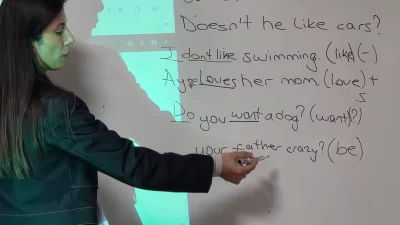 Doesn't he like cars?
I don't like swimming. (like) (-)
Ayşe Loves her mom. (love) +
s
Do you want a dog? (want) (?)
your father crazy? (be)